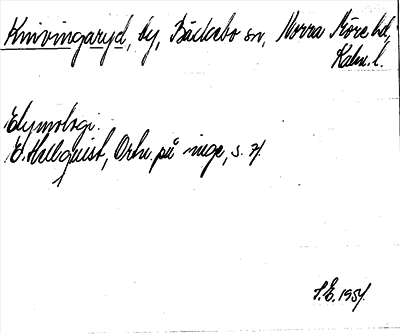 Knivingaryd, by, Bäckebo sn, Norra Möre hd,
Kalm. l.
Etymologi.
E. Hellquist, Ortn. på inge, s. 71.
S.E. 1957.